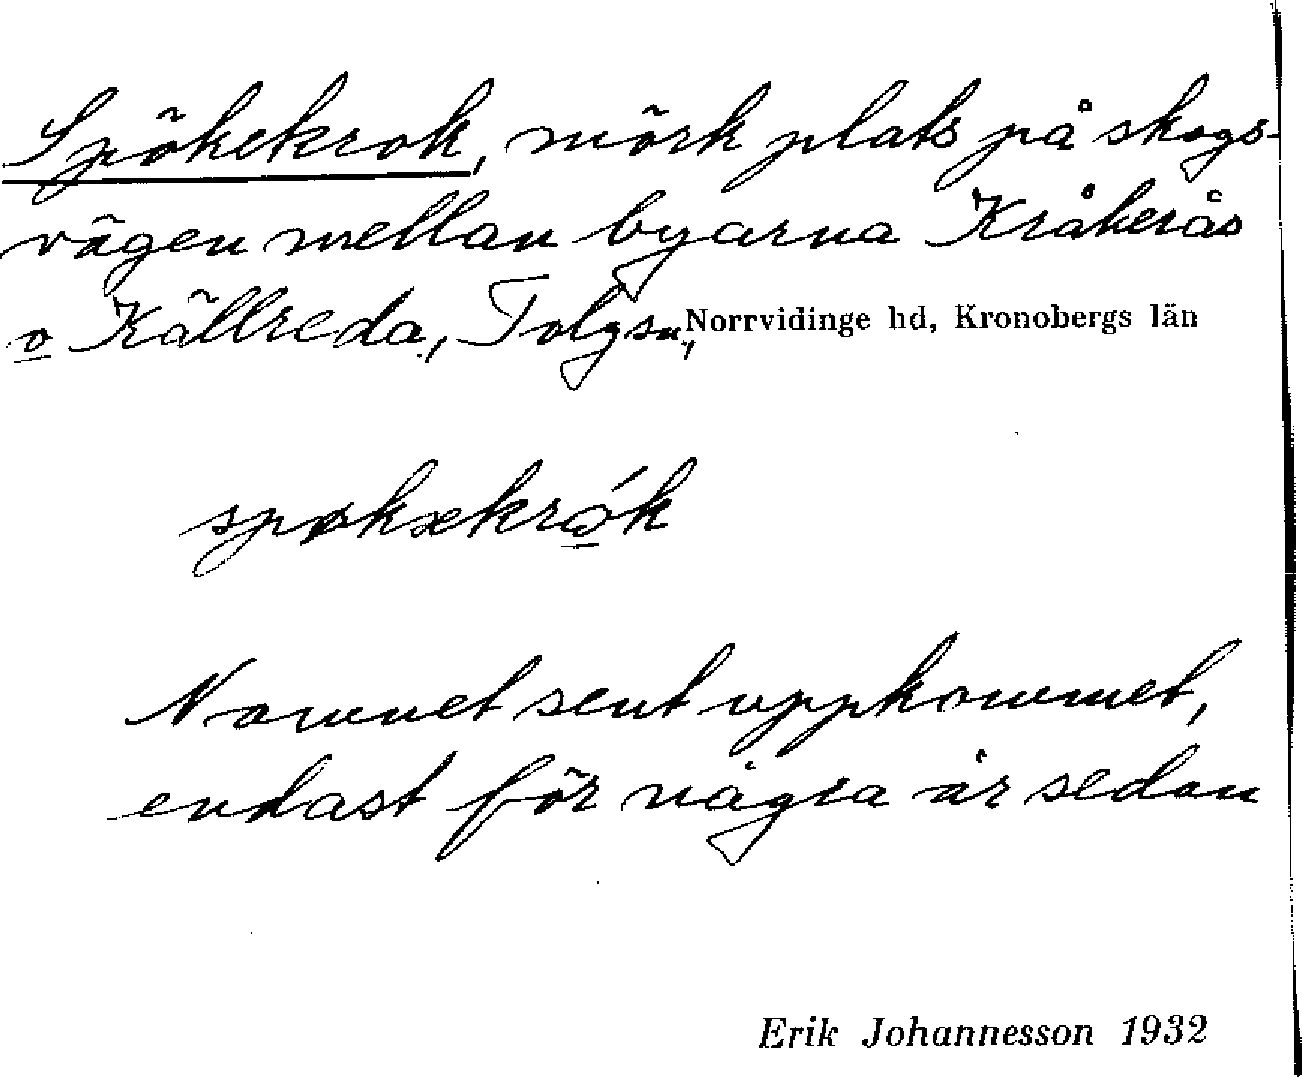 Spökekrok, mörk plats på skogs-
vägen mellan byarna Kråkerås
o Källreda, Tolgsn, Norrvidinge hd, Kronobergs län
spøkækrǫ́k
Namnet sent uppkommet,
endast för några år sedan
Erik Johannesson 1932